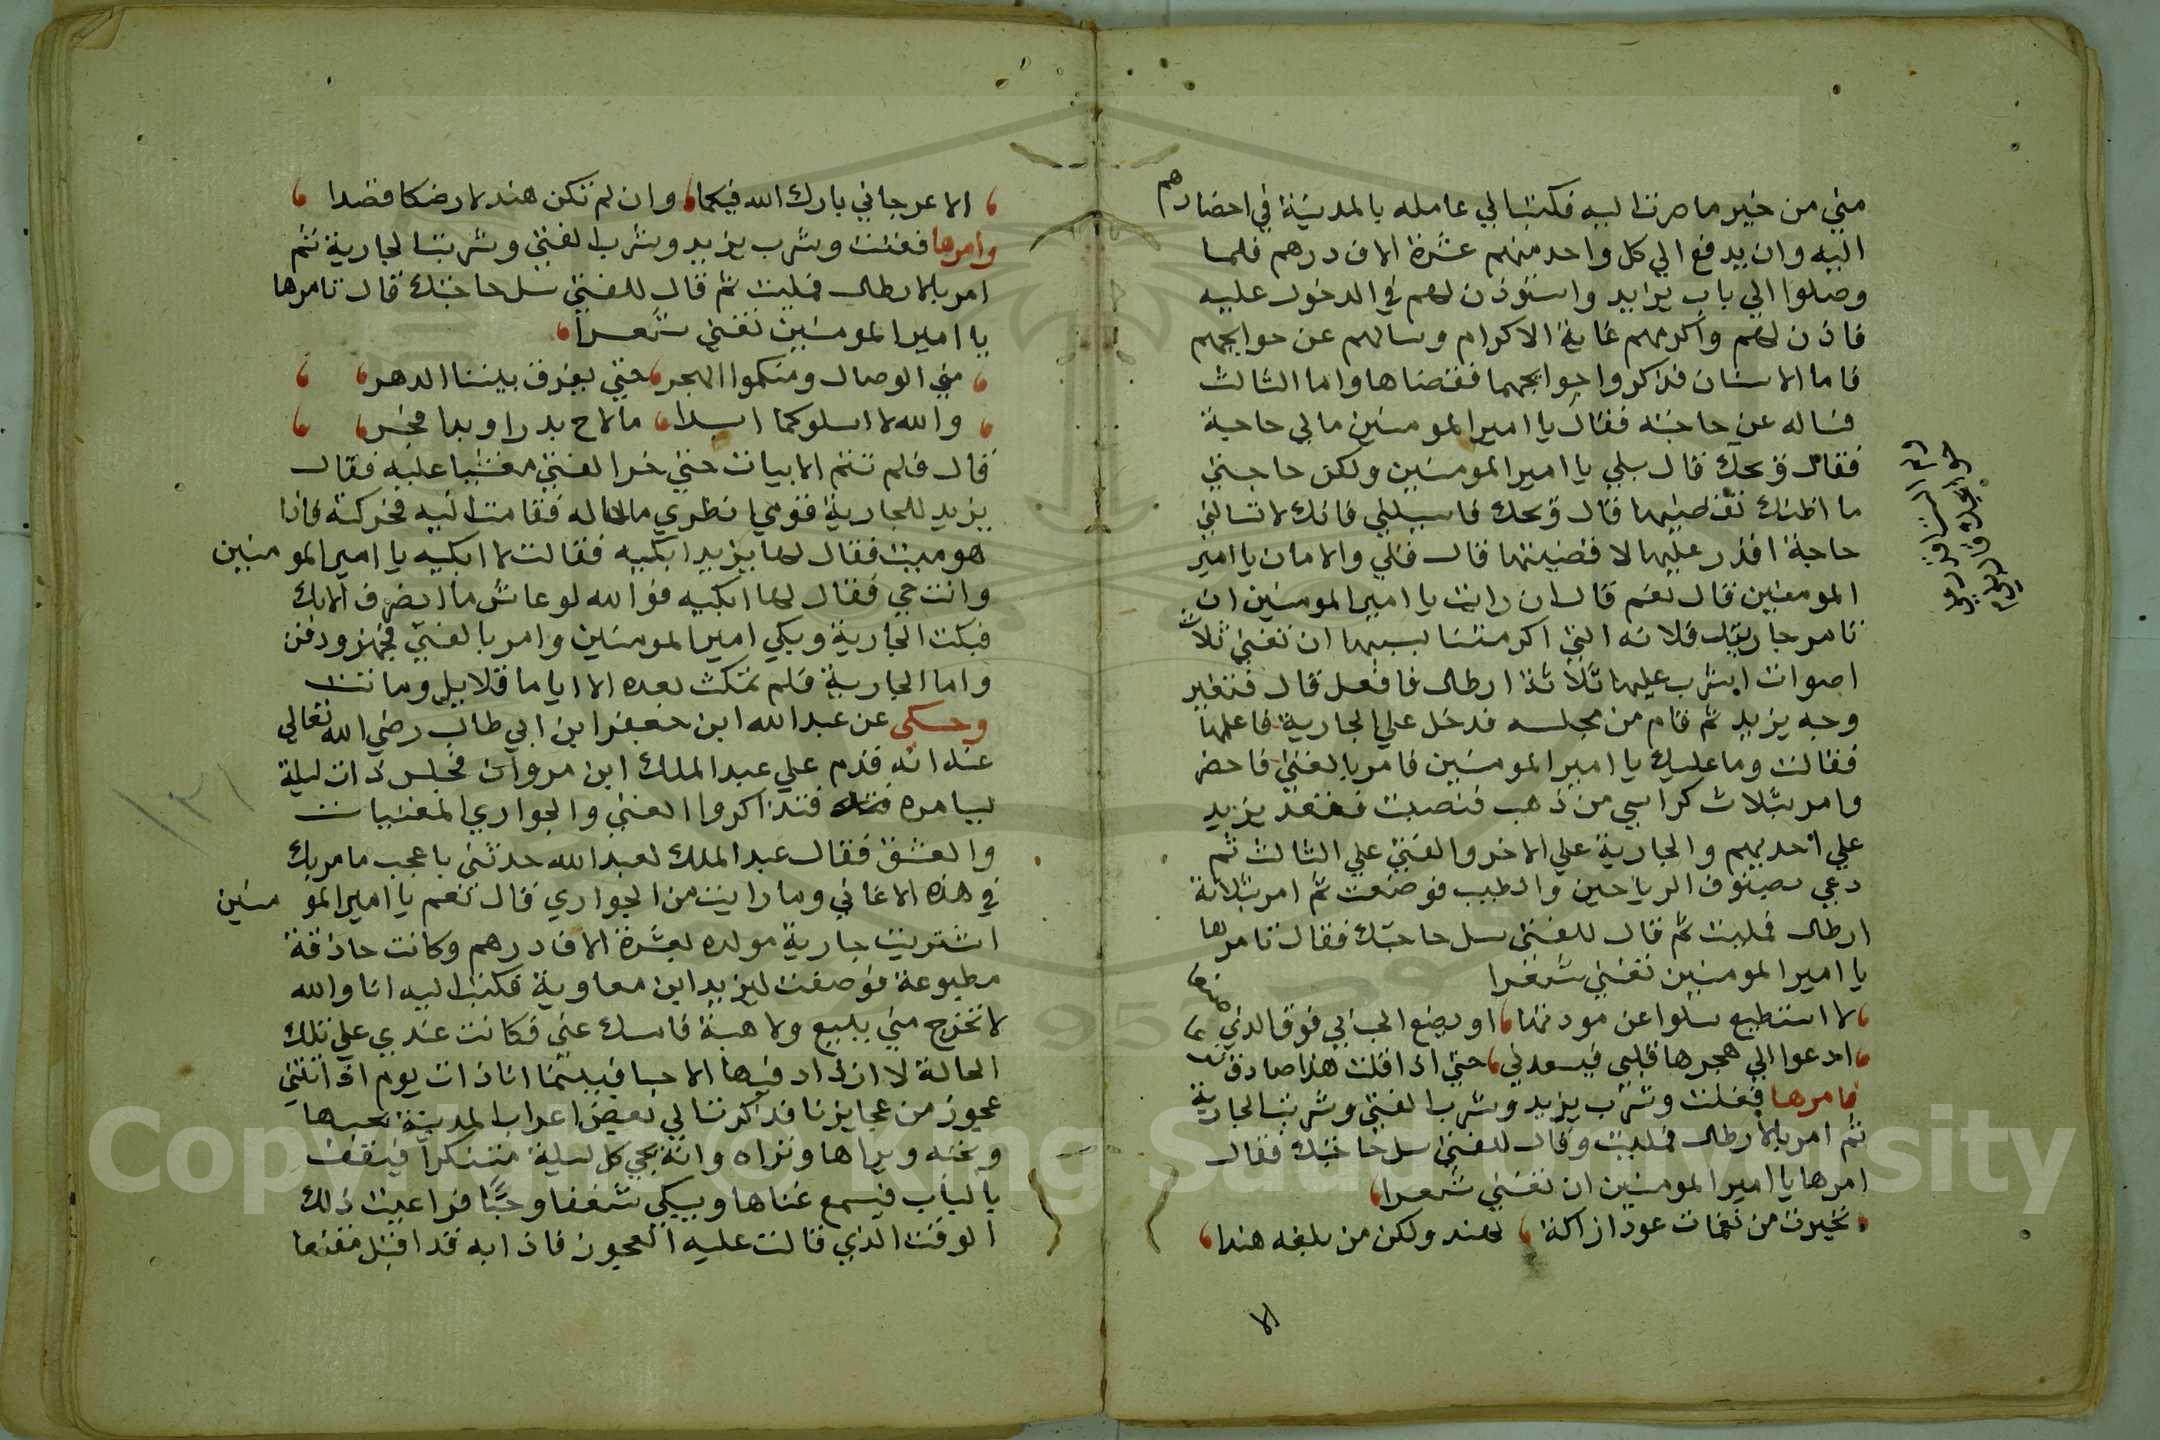 مني من خير ما صرت اليه فكتب الي عامله بالمدينة في احضارهم
اليه وان يدفع الي كل واحد منهم عشرة الاف درهم فلما
وصلوا الي باب يزيد واستوذن لهم في الدخول عليه
فاذن لهم واكرمهم غاية الاكرام وسالهم عن حوايجهم
فاما الاثنان فذكروا حوايجهما فقضاها واما الثالث
فساله عن حاجته فقال يا امير المومنين مالي حاجة
فقال ويحك قال بلي يا امير المومنين ولكن حاجتي
ما اظنك تقضيها قال ويحك فاسيلني فانك لا تسالني
حاجة اقدر عليها الا قضيتها قال فلي والامان يا امير
المومنين قال نعم قال ان رايت يا امير المومنين ان
تامر جاريتك فلانه التي اكرمتنا بسببها ان تغني ثلاث
اصوات اشرب عليها ثلاثة ارطال فافعل قال فتغير
وجه يزيد ثم قام من مجلسه فدخل علي الجارية فاعلمها
فقالت وما عليك يا امير المومنين فامر بالفتي فاحضر
وامر بثلاث كراسي من ذهب فنصبت فقعد يزيد
علي احديهم والجارية علي الاخر والفتي علي الثالث ثم
دعي بصنوف الرياحين والطيب فوضعت ثم امر بثلاثة
ارطال فمليت ثم قال للفتي سل حاجتك فقال تامرها
يا امير المومنين تغني شعرا
لا استطيع سلوا عن مودتها او يصنع الحب بي فوق الذي صنعا
ادعوا الي هجرها قلبي فيسعدني حتي اذا قلت هذا صادق نزعا
فامرها فغنت وشرب يزيد وشرب الفتي وشربت الجارية
ثم امر بالارطال فمليت وقال للفتي سل حاجتك فقال
امرها يا امير المومنين ان تغني شعرا
تخيرت من نعمات عود اراكة لهند ولكن من يبلغه هندا
الا
الا عرجاني بارك الله فيكما وان لم تكن هند لارضكما قصدا
وامرها فغنت وشرب يزيد وشرب الفتي وشربت الجارية ثم
امر بالارطال فمليت ثم قال للفتي سل حاجتك قال تامرها
يا امير المومنين تغني شعرا
مني الوصال ومنكموا الهجر حتي يفرق بيننا الدهر
والله لا اسلوكما ابدا مالاح بدر او بدا فجر
قال فلم تتم الابيات حتي خر الفتي مغشيا عليه فقال
يزيد للجارية قومي انظري ما حاله فقامت اليه فحركته فاذا
هو ميت فقال لها يزيد ابكيه فقالت لا ابكيه يا امير المومنين
وانت حي فقال لها ابكيه فوالله لو عاش ما انصرف الا بك
فبكت الجارية وبكي امير المومنين وامر بالفتي فجهز ودفن
واما الجارية فلم تمكث بعده الا اياما قلايل وماتت
وحكي عن عبد الله ابن جعفر ابن ابي طالب رضي الله تعالي
عنه انه قدم علي عبد الملك ابن مروان فجلس ذات ليلة
يسامره فتذاكروا الغني والجواري المغنيات
والعشق فقال عبد الملك لعبد الله حدثني باعجب ما مر بك
في هذه الاغاني وما رايت من الجواري قال نعم يا امير المومنين
اشتريت جارية مولده بعشرة الاف درهم وكانت حاذقة
مطبوعة فوصفت ليزيد ابن معاوية فكتب اليه انا والله
لا تخرج مني ببيع ولا هبة فامسك عني فكانت عندي علي تلك
الحالة لا ازداد فيها الا حبا فبينما انا ذات يوم اذ اتتني
عجوز من عجايزنا فذكرت لي بعض اعراب المدينة يحبها
وتحبه ويراها وتراه وانه يجي كل ليلة متنكرا فيقف
بالباب فيسمع غناها ويبكي شغفا وحبا فراعيت ذلك
الوقت الذي قالت عليه العجوز فاذا به قد اقبل مقنعا